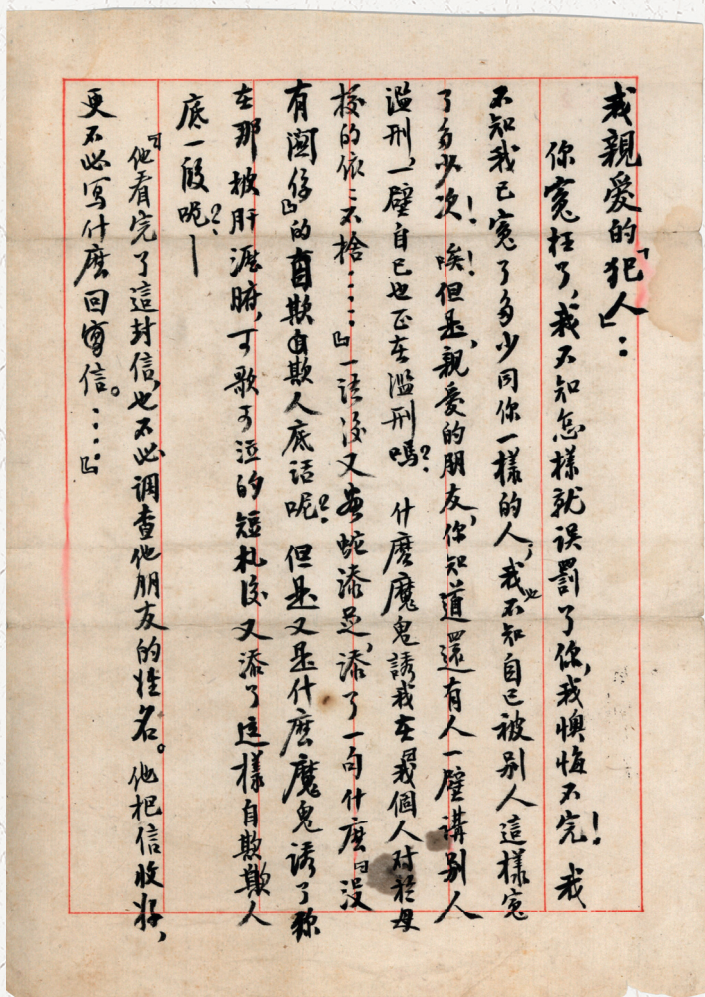 我親愛的「犯人」：
你寃枉了，我不知怎樣就误罰了你，我懊悔不完！ 我
不知我已寃了多少同你一樣的人，我也不知自己被别人這樣寃
了多少次！唉！但是，親愛的朋友，你知道還有人一壁講别人
滥刑，一壁自己也正在滥刑嗎？ 什麽魔鬼誘我在「我個人对於母
校的依：不捨……」一语後又畫蛇添足，添了一句什麽「没
有溷俘」的自欺自欺人底话呢？ 但是又是什麽魔鬼诱了你
在那披肝瀝膽，可歌可泣的短札後又添了這樣自欺欺人
底一段呢？——
「他看完了這封信，也不必调查他朋友的姓名。他把信收好，
更不必写什麽回信。……」